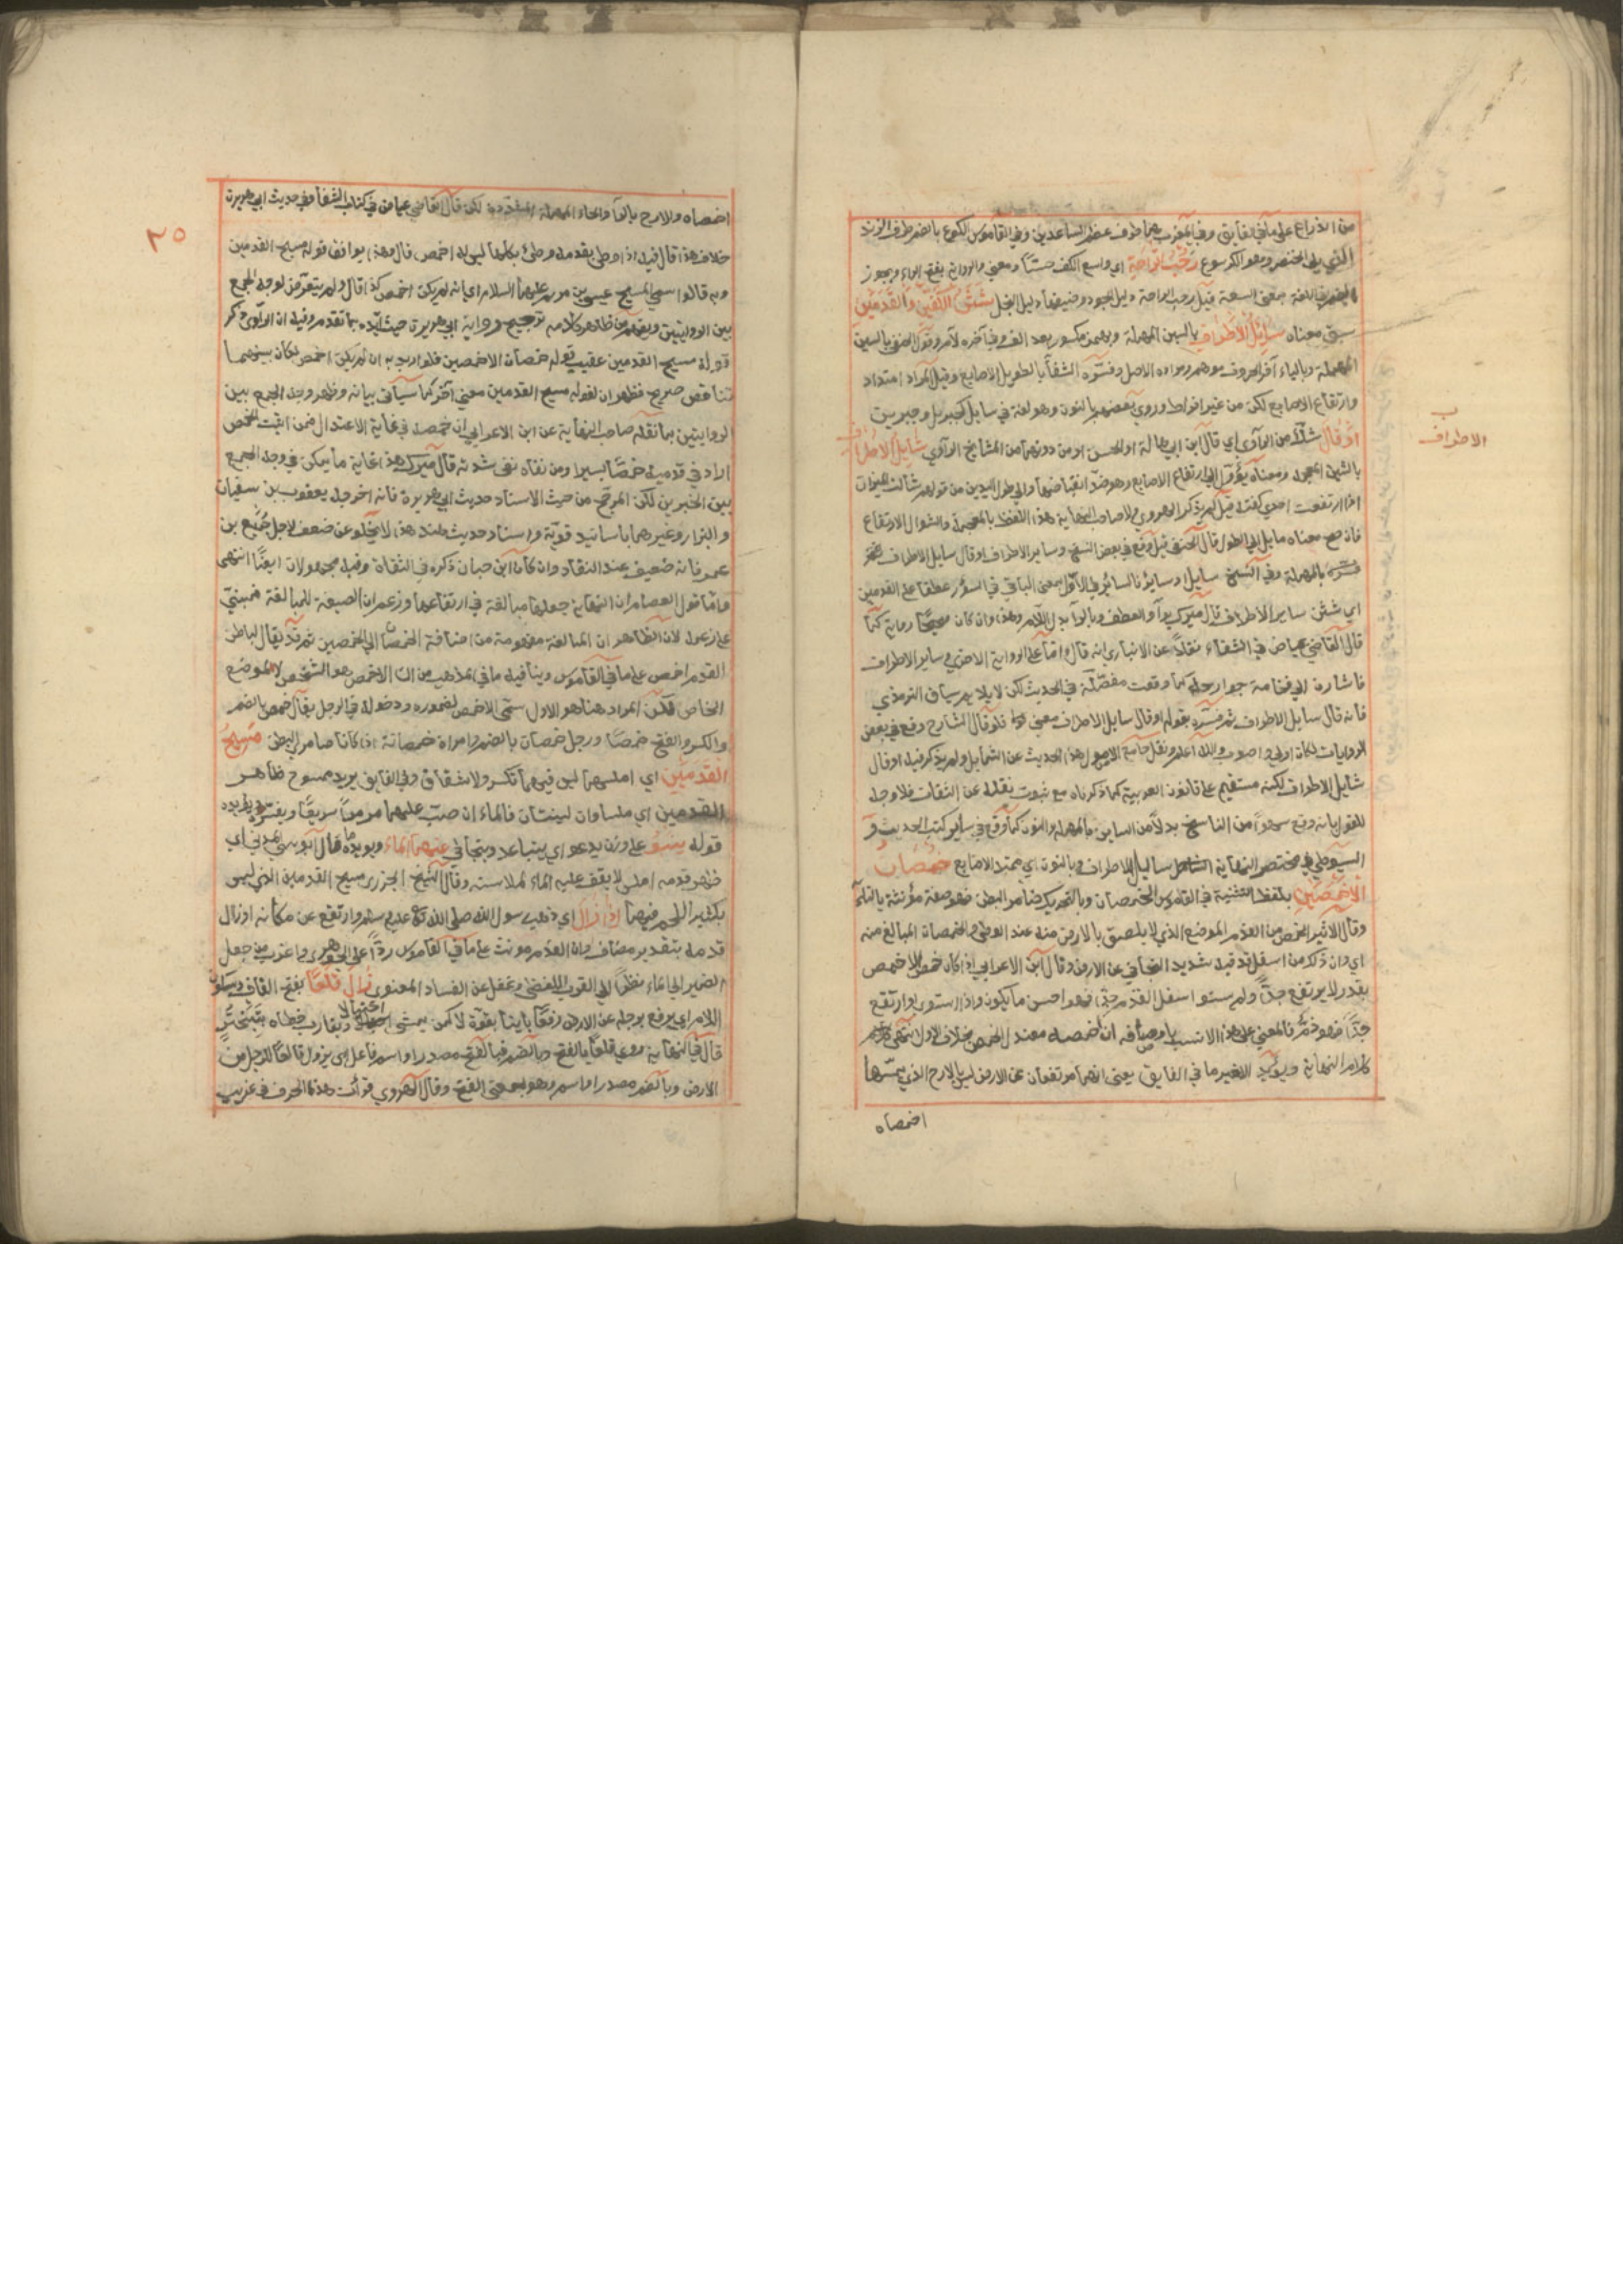 من الذراع على ما في الفايق وفي المغرب هما طرف عظم الساعدين وفي القاموس الكوع بالضم طرف الزند
الذي يلي الخنصر وهو الكرسوع رحب الراحة اي واسع الكف حسّا ومعنى والرواية بفتح الراء ويجوز
الضم في اللغة بمعنى السعة قيل رحب الراحة دليل الجود وضيقها دليل البخل شثن الكفين والقدمين
سبق معناه سائل الاطراف بالسين المهملة وبهمز مكسور بعد الف وفي آخره لام وقول الحنفي بالسين
المهملة وبالياء آخر الحروف موهم ومراده الاصل وفسّره الشفا بالطويل الاصابع وقيل المراد امتداد
وارتفاع الاصابع لكن من غير افراط وروى بعضهم بالنون وهو لغة في سايل كجبريل وجبرين
او قال شك من الراوي اي قال ابن ابي هالة او الحسن او من دونهما من المشايخ الراوي شايل الاطراف
بالشين المعجمة ومعناه يؤول الى ارتفاع الاصابع وهو ضدّ انقباضها والى طول اليدين من قولهم شالت الميزان
اذا ارتفعت احدى كفتيه قيل لم يذكر الهروي ولا صاحب النهاية هذا اللفظ بالمعجمة والشوال الارتفاع
فان صح معناه مايل الى الطول قال الحنفي قيل وقع في بعض النسخ وساير الاطراف او قال سايل الاطراف
فسّره بالمهملة وفي النسخ سايل او ساير فالساير في الاول بمعنى الباقي في السؤر عطفا على القدمين
اي شثن ساير الاطراف قال ميرك بواو العطف وبالراء بدل اللام وهذا وان كان صحيحا رواية كما
قال القاضي عياض في الشفاء نقلا عن الانباري انه قال واما على الرواية الاخرى وساير الاطراف
فاشارة الى فخامة جوارحه كما وقعت مفصّلة في الحديث لكن لا يلايم سياق الترمذي
فانه قال سايل الاطراف ثم فسّره بقوله او قال سايل الاطراف معنى فلو قال الشارح وقع في بعض
الروايات لكان اولى واصوب والله اعلم ونقل جامع الاصول هذا الحديث عن الشمايل ولم يذكر فيه او قال
شايل الاطراف لكنه مستقيم على قانون العربية كما ذكرناه مع ثبوت نقله عن الثقات فلا وجه
للقول بانه وقع سهوا من الناسخ بدلا من الساين بالمهملة والنون كما وقع في ساير كتب الحديث و
السيوطي في مختصر النهاية سايل الاطراف وبالنون اي ممتد الاصابع خمصان
الاخمصين بلفظ التثنية في القاموس الخمصان وبالتحريك ضامر البطن فهو صفة مؤنثة بالتاء
وقال الاثير الخمص من القدم الموضع الذي لا يلصق بالارض منه عند الوطئ والخمصان المبالغ منه
اي وان ذلك من اسفل قدميه شديد التجافي عن الارض وقال ابن الاعرابي اذا كان خمص الاخمص
بقدر لا يرتفع جدّا ولم يستو اسفل القدم جدّا فهو احسن ما يكون واذا استوى وارتفع
جدّا فهو ذم فالمعنى على هذا الانسب باوصافه ان اخمصه معتدل الخمص بخلاف الاول انتهى
كلام النهاية ويؤيد الاخير ما في الفايق يعني انهما مرتفعان عن الارض ليس بالارح الذي يمسّها
اخمصاه
ب
الاطراف
٣٥
اخمصاه والارح بالراء والحاء المهملة المشددة لكن قال القاضي عياض في كتاب الشفا وفي حديث ابي هريرة
خلاف هذا قال فيه اذا وطئ بقدمه وطئ بكلها ليس له اخمص قال وهذا يوافق قوله مسيح القدمين
وبه قالوا سمي المسيح عيسى بن مريم عليهما السلام اي انه لم يكن اخمص كذا قال ولم يتعرض لوجه الجمع
بين الروايتين ويفهم من ظاهر كلامه ترجيح رواية ابي هريرة حيث ايّده بما تقدم وفيه ان الراوي ذكر
قوله مسيح القدمين عقيب قوله خمصان الاخمصين فلو اريد به ان لم يكن اخمص لكان بينهما
تناقض صريح فظهر ان لقوله مسيح القدمين معنى آخر كما سيأتي بيانه وظهر وجه الجمع بين
الروايتين بما نقله صاحب النهاية عن ابن الاعرابي ان خمصه في غاية الاعتدال فمن اثبت الخمص
اراد في قدميه خمصا يسيرا ومن نفاه نفى شدته قال ميرك هذا غاية ما يمكن في وجه الجمع
بين الخبرين لكن المرجّح من حيث الاسناد حديث ابي هريرة فانه اخرجه يعقوب بن سفيان
والبزار وغيرهما باسانيد قوية واسناد حديث هند هذا لا يخلو عن ضعف لاجل جُميع بن
عمر فانه ضعيف عند النقاد وان كان ابن حبان ذكره في الثقاة وفيه مجهولان ايضا انتهى
واما قول العصام ان النهاية جعلها مبالغة في ارتفاعها وزعم ان الصيغة للمبالغة فمبني
على زعمه لان الظاهر ان المبالغة مفهومة من اضافة الخمصان الى الخمصين ثم قد يقال لباطن
القدم اخمص على ما في القاموس وينافيه ما في المذاهب من ان الاخمص هو الشخص الموضع
الخاص فلكن المراد هنا هو الاول سمّي الاخمص لضموره ودخوله في الرجل يقال خمص بالضم
والكسر والفتح خمصا ورجل خمصان بالضم وامراة خمصانة اذا كانا ضامر البطن مسيح
القدمين اي املسهما ليس فيهما تكسر ولا شقاق وفي الفايق يريد ممسوح ظاهر
القدمين اي ملساوان لينتان فالماء ان صبّ عليهما مرّ مرّا سريعا ويؤيده
قوله ينبو على وزن يدعو اي يتباعد ويتجافى عنهما الماء ويؤيده ما قال ابو موسى المديني اي
ظهر قدمه املس لا يقف عليه الماء لملاسته وقال الشيخ الجزري مسيح القدمين الذي ليس
بكثير اللحم فيهما اذا زال اي ذهب رسول الله صلى الله تعالى عليه وسلم وارتفع عن مكانه او زال
قدمه بتقدير مضاف وان القدم مونث على ما في القاموس ردّا على الجوهري واغرب من جعل
الضمير الى الماء نظرا الى القرب اللفظي وغفل عن الفساد المعنوي زال قلعا بفتح القاف وسكون
اللام اي يرفع رجله عن الارض رفعا باينا بقوة لا كمن يمشي اختيالا ويقارب خطاه
قال في النهاية روي قلعا بالفتح وبالضم فبالفتح مصدر او اسم فاعل اي يزول قالعا لرجله من
الارض وبالضم مصدر او اسم وهو بمعنى الفتح وقال الهروي قرأت هذا الحرف في غريب